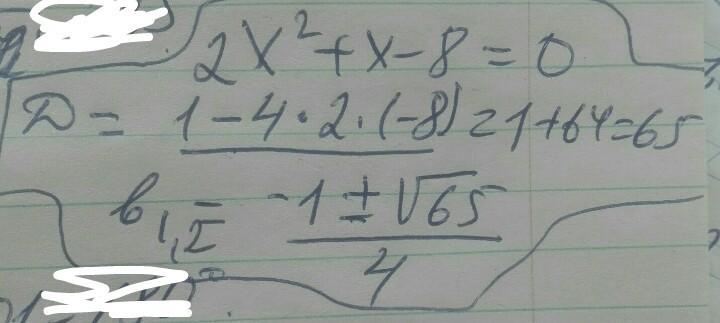 2x²+x-8=0
D= 1-4·2·(-8)=1+64=65
b₁,₂= (-1±√65)/4